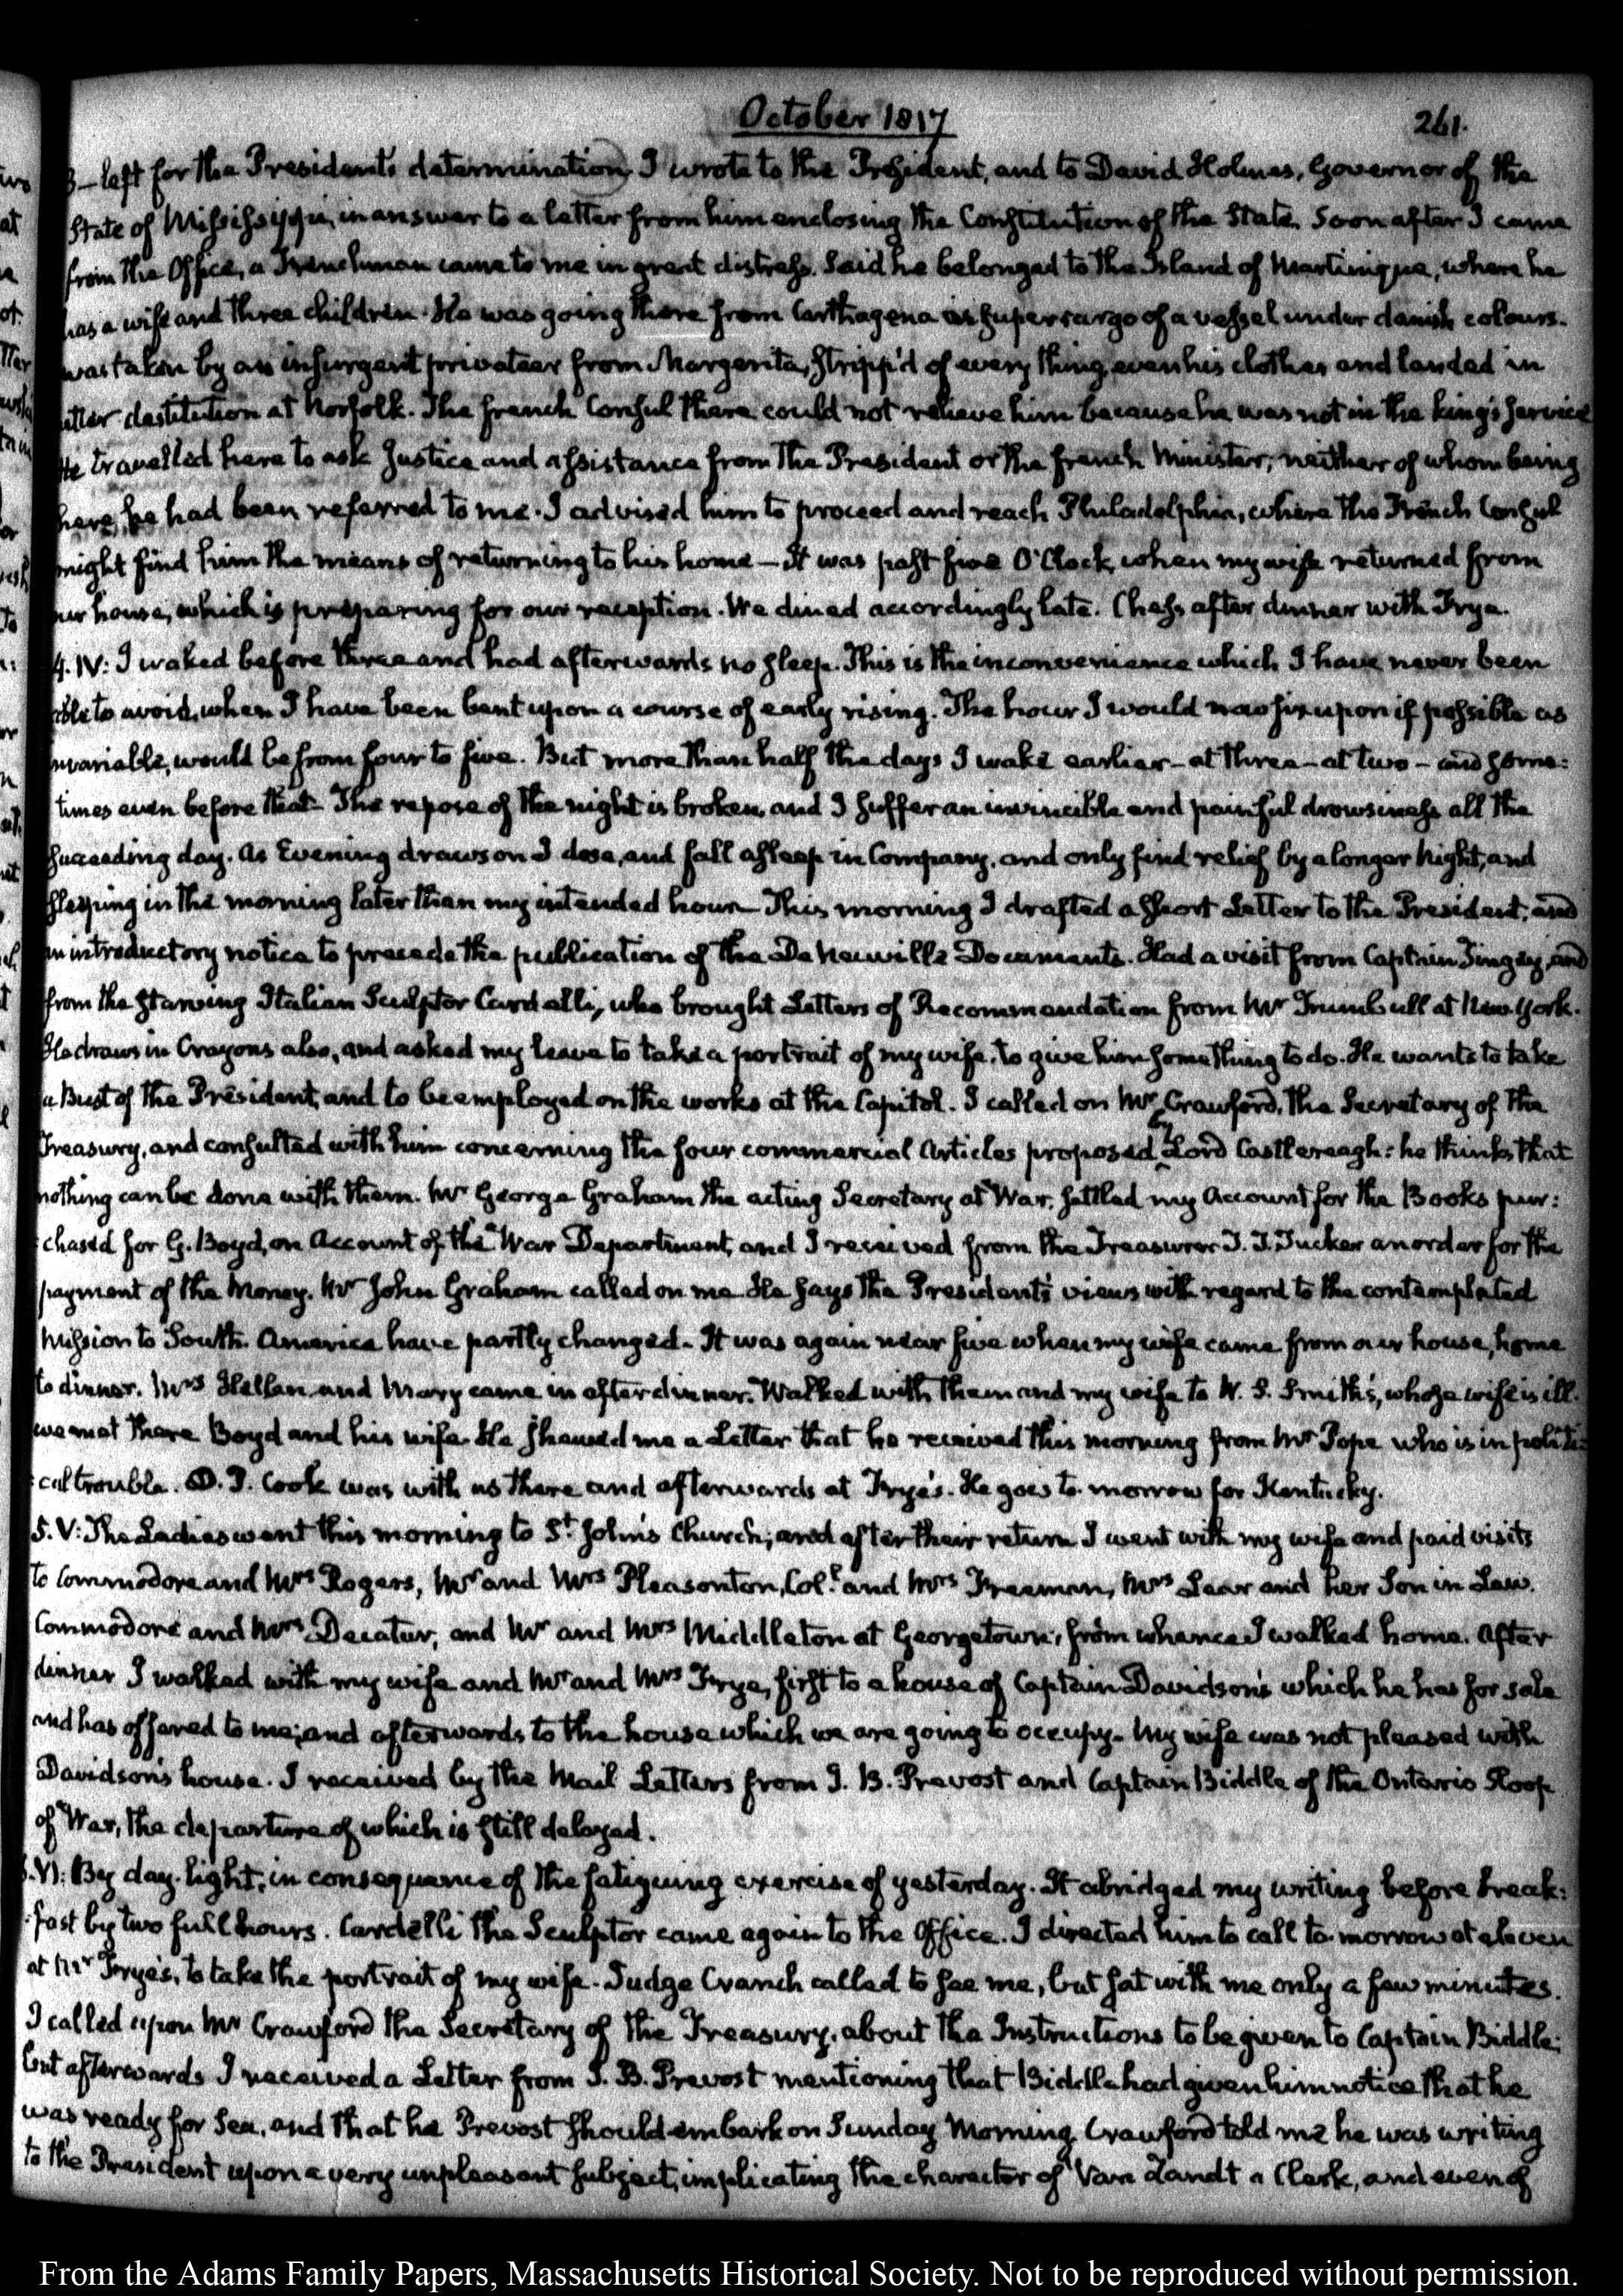 October 1817
261.
3— left for the President's determination. I wrote to the President, and to David Holmes, Governor of the
State of Mississippi, in answer to a letter from him enclosing the Constitution of the State. Soon after I came
from the Office, a Frenchman came to me in great distress. Said he belonged to the Island of Martinique, where he
has a wife and three children. He was going there from Carthagena as supercargo of a vessel under danish colours.
was taken by an insurgent privateer from Margerita, stripp'd of every thing, even his clothes and landed in
utter destitution at Norfolk. The french Consul there could not relieve him because he was not in the king's service
He travelled here to ask justice and assistance from the President or the french Minister; neither of whom being
here, he had been referred to me. I advised him to proceed and reach Philadelphia, where the French Consul
might find him the means of returning to his home — It was past five O'Clock, when my wife returned from
our house, which is preparing for our reception. We dined accordingly late. Chess after dinner with Frye.
4. IV: I waked before three and had afterwards no sleep. This is the inconvenience which I have never been
able to avoid, when I have been bent upon a course of early rising. The hour I would now fix upon if possible as
invariable, would be from four to five. But more than half the days I wake earlier — at three — at two — and some:
times even before that — The repose of the night is broken, and I suffer an invincible and painful drowsiness all the
succeeding day. As Evening draws on I dose, and fall asleep in Company, and only find relief by a longer night, and
sleeping in the morning later than my intended hour — This morning I drafted a short Letter to the President; and
an introductory notice to precede the publication of the De Neuville Documents. Had a visit from Captain Tingey, and
from the starving Italian Sculptor Cardelli, who brought Letters of Recommendation from Mr Trumbull at New York.
He draws in Crayons also, and asked my leave to take a portrait of my wife, to give him something to do. He wants to take
a Bust of the President, and to be employed on the works at the Capitol. I called on Mr Crawford, the Secretary of the
Treasury, and consulted with him concerning the four commercial Articles proposed by Lord Castlereagh: he thinks that
nothing can be done with them. Mr George Graham the acting Secretary at War, settled my Account for the Books pur:
:chased for G. Boyd, on Account of the War Department, and I received from the Treasurer T. T. Tucker an order for the
payment of the Money. Mr John Graham called on me. He says the President's views with regard to the contemplated
Mission to South America have partly changed. It was again near five when my wife came from our house, home
to dinner. Mrs Hellen and Mary came in after dinner. Walked with them and my wife to W. S. Smith's, whose wife is ill.
we met there Boyd and his wife. He shewed me a Letter that he received this morning from Mr Pope who is in politi:
:cal trouble. D. P. Cook was with us there and afterwards at Frye's. He goes to-morrow for Kentucky.
5. V: The Ladies went this morning to St John's Church; and after their return I went with my wife and paid visits
to Commodore and Mrs Rogers, Mr and Mrs Pleasonton, Col. and Mrs Freeman, Mrs Lear and her Son in Law.
Commodore and Mrs Decatur, and Mr and Mrs Middleton at Georgetown; from whence I walked home. After
dinner I walked with my wife and Mr and Mrs Frye, first to a house of Captain Davidson's which he has for sale
and has offered to me; and afterwards to the house which we are going to occupy. My wife was not pleased with
Davidson's house. I received by the Mail Letters from J. B. Prevost and Captain Biddle of the Ontario Sloop
of War, the departure of which is still delayed.
6. VI: By day-light, in consequence of the fatiguing exercise of yesterday. It abridged my writing before break:
:fast by two full hours. Cardelli the Sculptor came again to the Office. I directed him to call to-morrow at eleven
at Mr Frye's, to take the portrait of my wife. Judge Cranch called to see me, but sat with me only a few minutes.
I called upon Mr Crawford the Secretary of the Treasury, about the Instructions to be given to Captain Biddle;
but afterwards I received a Letter from J. B. Prevost mentioning that Biddle had given him notice that he
was ready for Sea, and that he Prevost should embark on Sunday Morning. Crawford told me he was writing
to the President upon a very unpleasant subject, implicating the character of Van Zandt a Clerk, and even of
From the Adams Family Papers, Massachusetts Historical Society. Not to be reproduced without permission.